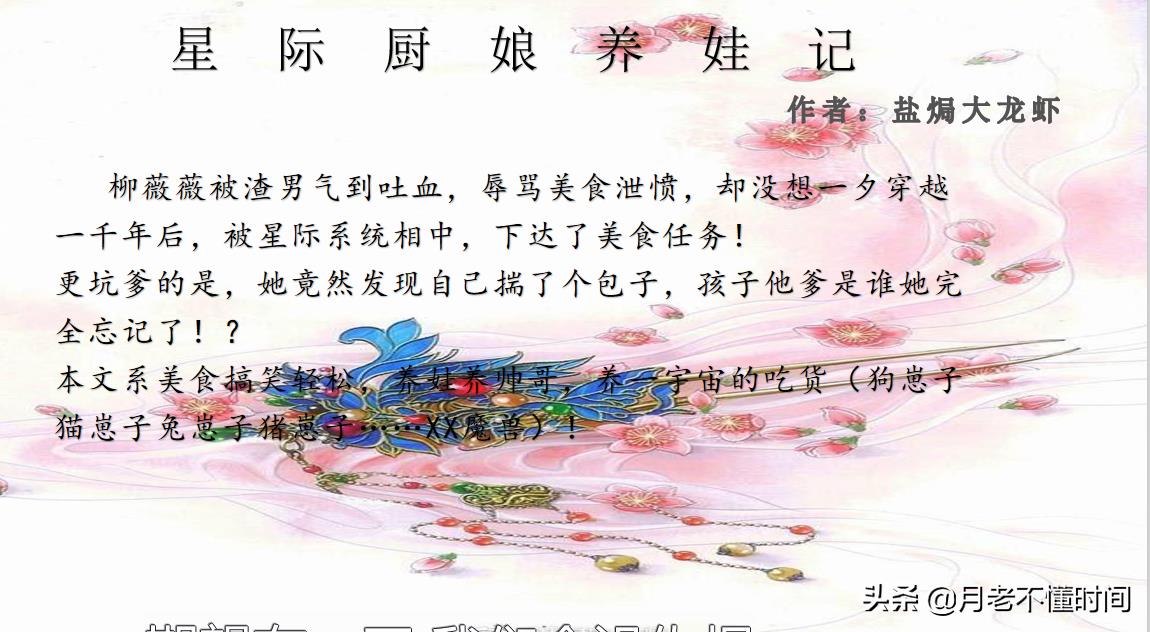 星际厨娘养娃记
作者：盐焗大龙虾
柳薇薇被渣男气到吐血，辱骂美食泄愤，却没想一夕穿越
一千年后，被星际系统相中，下达了美食任务！
更坑爹的是，她竟然发现自己揣了个包子，孩子他爹是谁她完
全忘记了！？
本文系美食搞笑轻松，养娃养帅哥，养一宇宙的吃货（狗崽子
猫崽子兔崽子猪崽子……XX魔兽）！
头条 @月老不懂时间